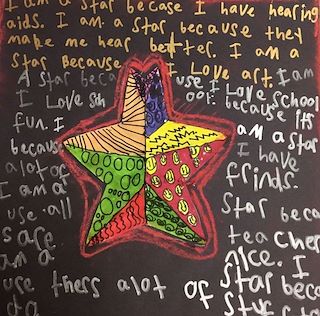 I am a star becase I have hearing
aids. I am a star because they
make me hear better. I am a
star because I love art. I am
A star beca use I Love school
I Love Sch ool because its
fun. I am a star
becaus I have
alot of frinds.
I am a Star beca
use all teacher
s are nice. I
am a star beca
use thers alot of